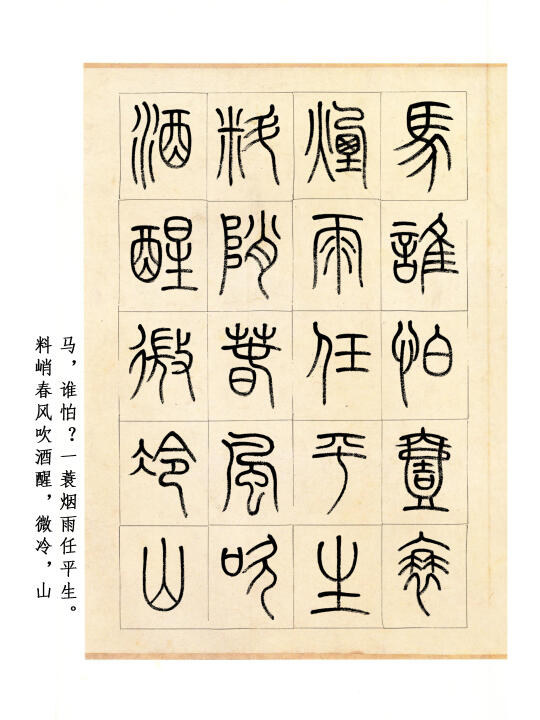 馬誰怕壹蓑
煙雨任平生
料陗萅風吹
酒醒微冷山
马，谁怕？一蓑烟雨任平生。
料峭春风吹酒醒，微冷，山